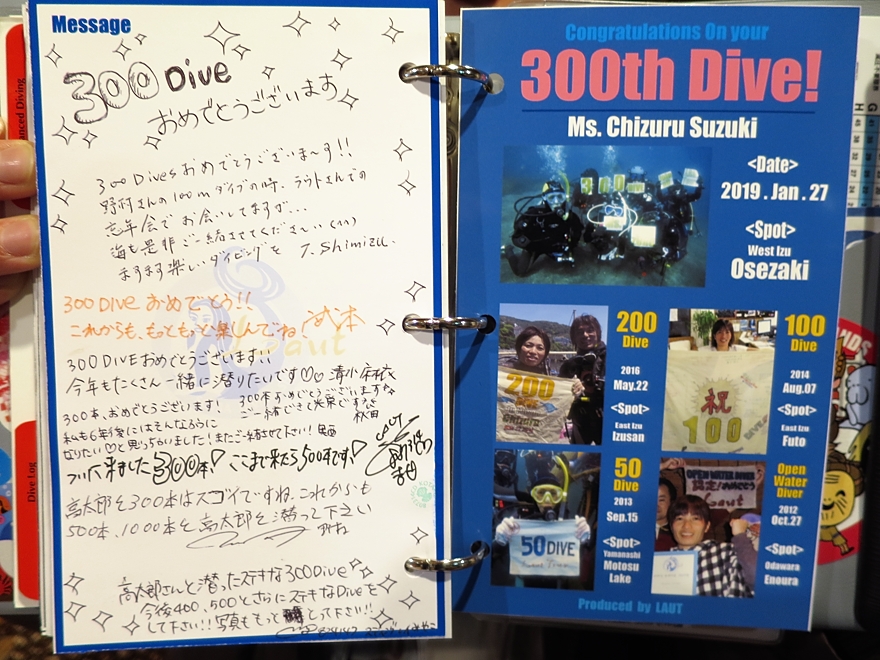 Message
300 Dive
おめでとうございます
300 Dives おめでとうございま〜す!!
野村さんの100mダイブの時、ラウトさんでの
忘年会でお会いしてますが…
海も是非ご一緒させてくださ〜い(^^)
ますます楽しいダイビングを T. Shimizu.
300 DIVE おめでとう!!
これからも、もっともっと楽しんでね
300 DIVE おめでとうございます!!
今年もたくさん一緒に潜りたいです♡♡ 清小麻衣
300本、おめでとうございます!
300本おめでとうございますな
私も6年後にはそんなふうに
ご一緒できて光栄ですな
秋田
なりたい♡と思っちゃいました!またご一緒させて下さい!
ついに来ました300本! ここまで来たら500本です!
高太郎と300本はスゴイですね。これからも
500本、1000本と高太郎と潜って下さい
高太郎さんと潜ったステキな300Dive
今後400、500とさらにステキなDiveを
して下さい!!写真ももっと とって下さい!!
Congratulations On your
300th Dive!
Ms. Chizuru Suzuki
<Date>
2019 . Jan . 27
<Spot>
West Izu
Osezaki
300
200
Dive
2016
May.22
<Spot>
East Izu
Izusan
200
100
Dive
2014
Aug.07
<Spot>
East Izu
Futo
祝
100
50
Dive
2013
Sep.15
<Spot>
Yamanashi
Motosu
Lake
50 DIVE
Open
Water
Diver
2012
Oct.27
<Spot>
Odawara
Enoura
OPEN WATER DIVER
認定おめでとう
Laut
Produced by LAUT
anced Diving
Dive Log